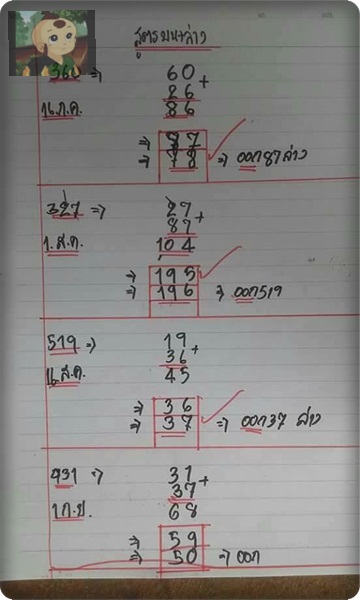 สูตรบน+ล่าง
360 => 60 +
26
16 ก.ค. 86
=> 87
=> 78 => ออก 87 ล่าง
327 => 27 +
87
1. ส.ค. 104
=> 195
=> 196 => ออก 519
519 => 19 +
36
16 ส.ค. 45
=> 36
=> 37 => ออก 37 ล่าง
931 => 31 +
37
1 ก.ย. 68
=> 59
=> 50 => ออก